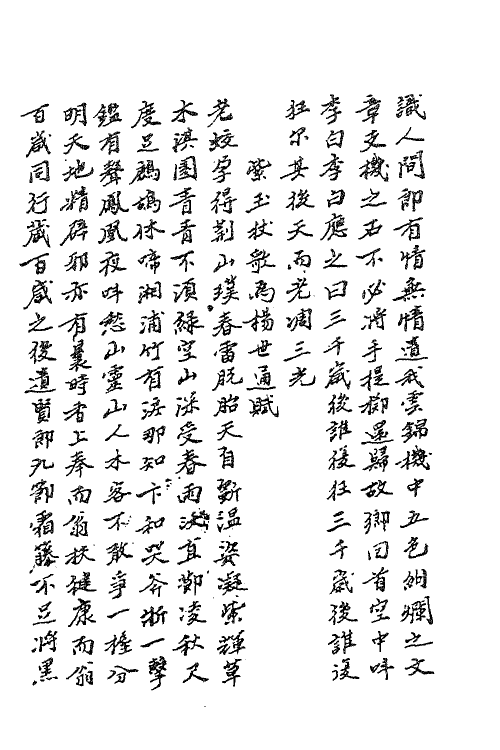 識人間即有情無情遺我雲錦機中五色絢爛之文
章支機之石不必將手提擲還歸故鄉回首空中呼
李白李白應之曰三千歲後誰復狂三千歲後誰復
狂尔其後天而老凋三光
紫玉杖歌為楊世通賦
老蛟孕得荆山璞春雷脱胎天自斵温姿凝紫輝草
木淇園青青不湏緑空山深受春雨沃直節凌秋又
度足鷓鴣休啼湘浦竹有淚那知卞和哭斧斨一擊
鑑有聲鳳凰夜呌愁山靈山人木客不敢爭一權分
明天地精辟邪亦有曩時者上奉而翁扶健康而翁
百歲同行歲百歲之後遺賢郎九節霜藤不足將黑